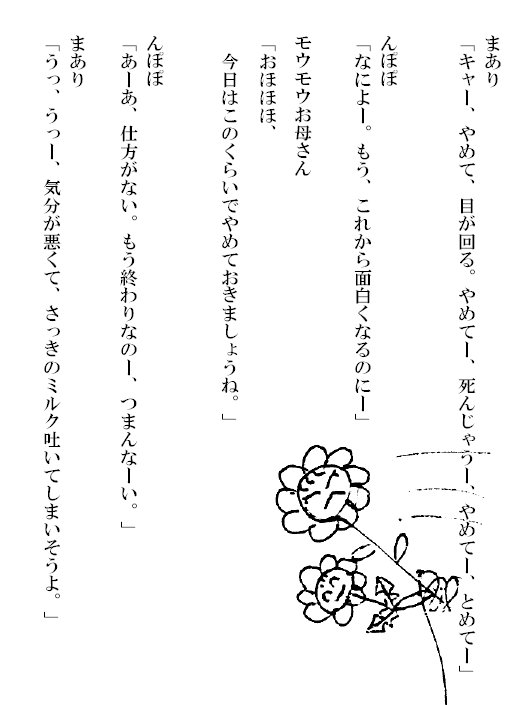 まあり
「キャー、やめて、目が回る。やめてー、死んじゃうー、やめてー、とめてー」
んぽぽ
「なによー。もう、これから面白くなるのにー」
モウモウお母さん
「おほほほ、
今日はこのくらいでやめておきましょうね。」
んぽぽ
「あーあ、仕方がない。もう終わりなのー、つまんなーい。」
まあり
「うっ、うっー、気分が悪くて、さっきのミルク吐いてしまいそうよ。」